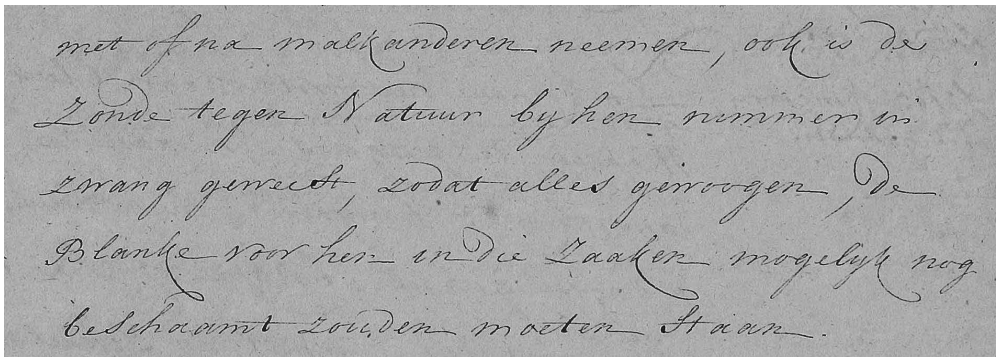 met of na malkanderen neemen, ook is de
Zonde tegen Natuur by hen nimmer in
zwang geweest, zodat alles gewoogen, de
Blanke voor hen in die Zaaken mogelyk nog
beschaamt zouden moeten staan.